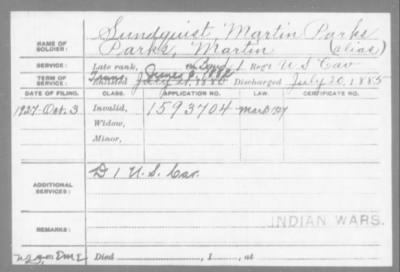 NAME OF SOLDIER: Sundquist, Martin Parks
Parks, Martin (alias)
Late rank, Regt U S Cav
TERM OF SERVICE: Enlisted Discharged July 20, 1885
DATE OF FILING. CLASS. APPLICATION NO. LAW. CERTIFICATE NO.
1927-Oct. 3 Invalid, 1593704
Widow,
Minor,
ADDITIONAL SERVICES: D 1 U.S. Cav.
REMARKS: INDIAN WARS.
Died , 1 , at